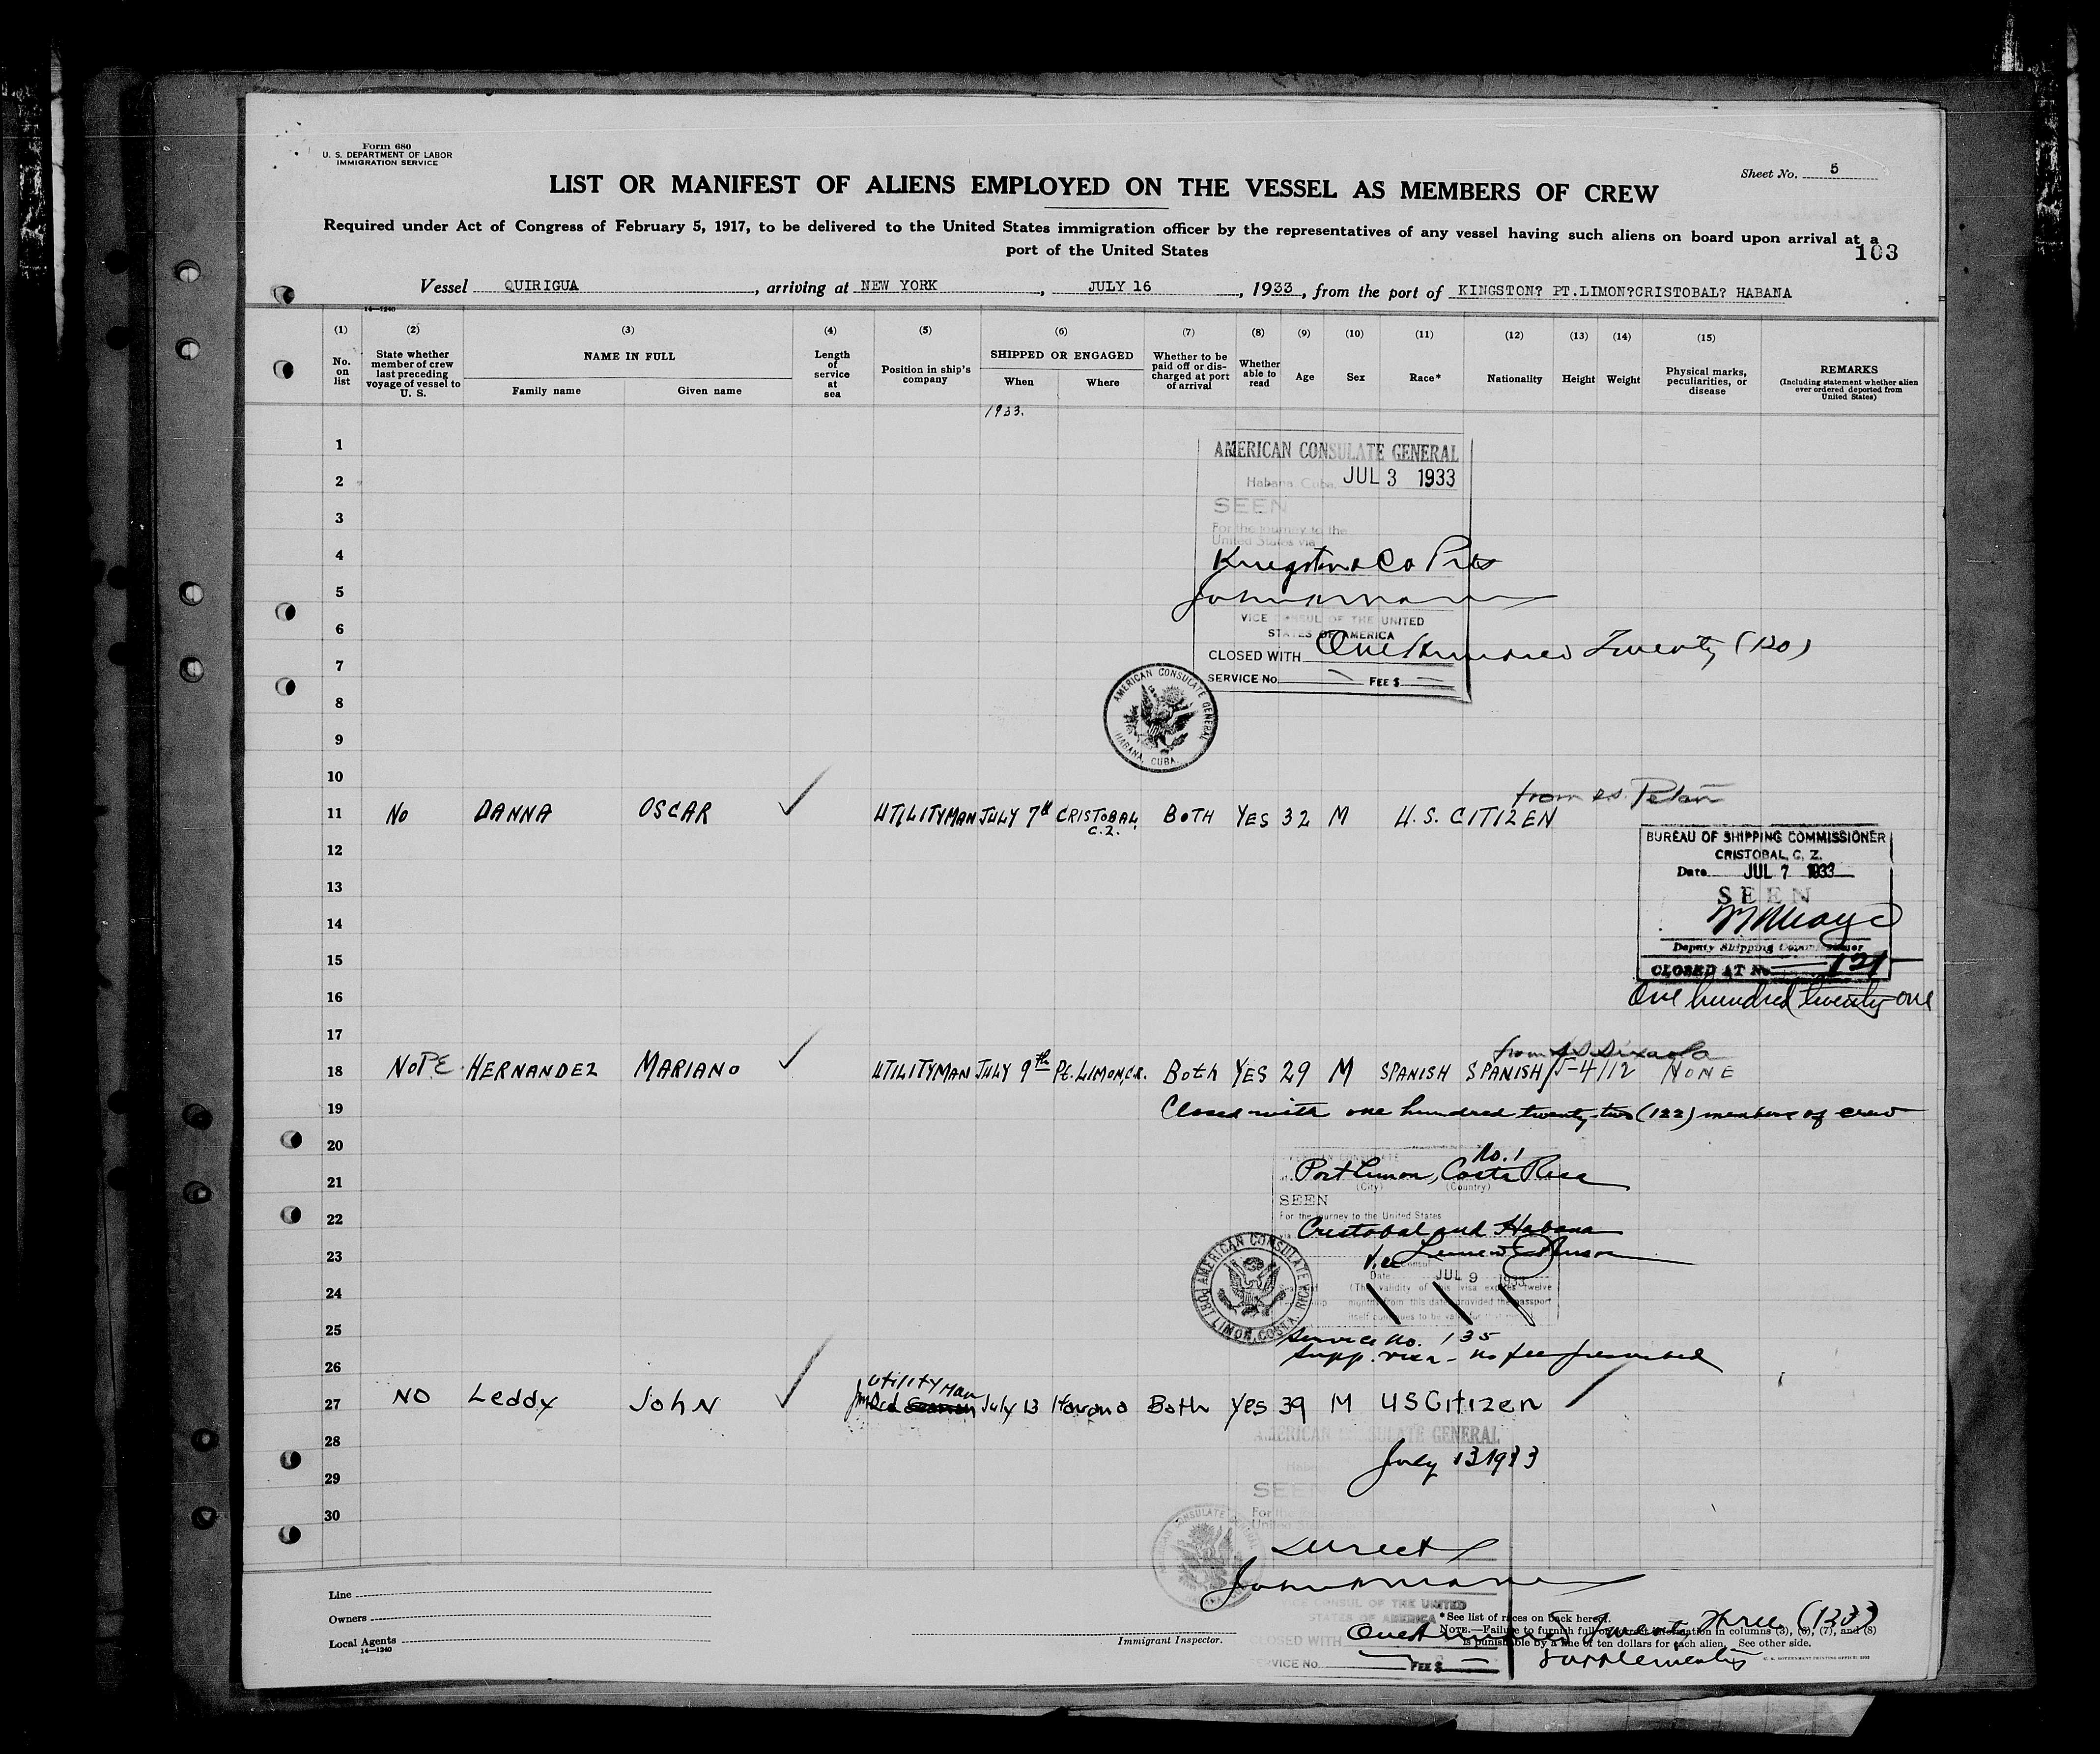 Form 680
U. S. DEPARTMENT OF LABOR
IMMIGRATION SERVICE
Sheet No. 5
LIST OR MANIFEST OF ALIENS EMPLOYED ON THE VESSEL AS MEMBERS OF CREW
Required under Act of Congress of February 5, 1917, to be delivered to the United States immigration officer by the representatives of any vessel having such aliens on board upon arrival at a
port of the United States
103
Vessel QUIRIGUA, arriving at NEW YORK, JULY 16, 1933, from the port of KINGSTON? PT.LIMON?CRISTOBAL? HABANA
14—1240
(1) (2) (3) (4) (5) (6) (7) (8) (9) (10) (11) (12) (13) (14) (15)
No. on list
State whether member of crew last preceding voyage of vessel to U. S.
NAME IN FULL
Family name
Given name
Length of service at sea
Position in ship's company
SHIPPED OR ENGAGED
When
Where
Whether to be paid off or discharged at port of arrival
Whether able to read
Age
Sex
Race*
Nationality
Height
Weight
Physical marks, peculiarities, or disease
REMARKS
(Including statement whether alien ever ordered deported from United States)
1933.
1
AMERICAN CONSULATE GENERAL
2
Habana, Cuba. JUL 3 1933
3
SEEN
For the journey to the
United States via
4
5
6
VICE CONSUL OF THE UNITED
STATES OF AMERICA
7
CLOSED WITH One Hundred Twenty (120)
SERVICE No. FEE $
8
AMERICAN CONSULATE GENERAL
HABANA, CUBA.
9
10
from ss. Peten
11 No DANNA OSCAR UTILITYMAN JULY 7th CRISTOBAL, C.Z. BOTH YES 32 M U.S. CITIZEN
12
BUREAU OF SHIPPING COMMISSIONER
CRISTOBAL, C. Z.
13
Date JUL 7 1933
SEEN
14
Deputy Shipping Commissioner
15
CLOSED AT No. 121
16
One hundred twenty-one
17
from SS Sixaola
18 NOPE HERNANDEZ MARIANO UTILITYMAN JULY 9th Pt. LIMON, C.R. Both YES 29 M SPANISH SPANISH 5-4/12 NONE
19
Closed with one hundred twenty-two (122) members of crew
20
No. 1
21
Port Limon, Costa Rica
(City) (Country)
SEEN
22
For the journey to the United States
Cristobal and Habana
23
Vice Consul
Date JUL 9 1933
24
(The validity of this visa expires twelve
months from this date provided the passport
itself continues to be valid for that
AMERICAN CONSULATE
PORT LIMON, COSTA RICA
25
Service No. 135
Supp. visa - no fee prescribed
26
UtilityMan
27 NO Leddy John July 13 Havana Both Yes 39 M US Citizen
AMERICAN CONSULATE GENERAL
28
July 13 1933
29
SEEN
30
Direct
VICE CONSUL OF THE UNITED
STATES OF AMERICA
CLOSED WITH One Hundred Twenty Three (123)
Supplementary
SERVICE No. FEE $
Line
Owners
Local Agents
14—1240
Immigrant Inspector.
*See list of races on back hereof.
NOTE.—Failure to furnish full or correct information in columns (3), (6), (7), and (8)
is punishable by a fine of ten dollars for each alien. See other side.